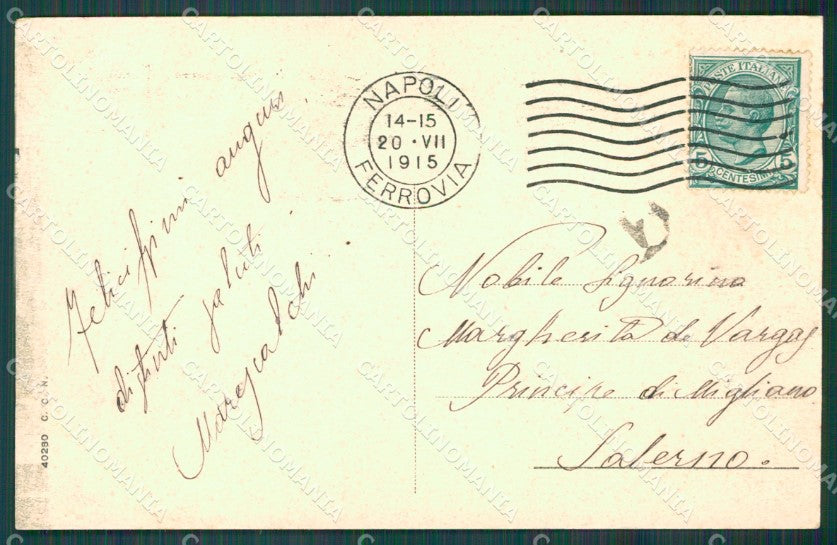 Felicissimi auguri
distinti saluti
Marescalchi
40290 C. C. N.
NAPOLI
14-15
20 · VII
1915
FERROVIA
POSTE ITALIANE
5 5
CENTESIMI
Nobile Signorina
Margherita de Vargas
Principe di Migliano
Salerno.
CARTOLINOMANIA